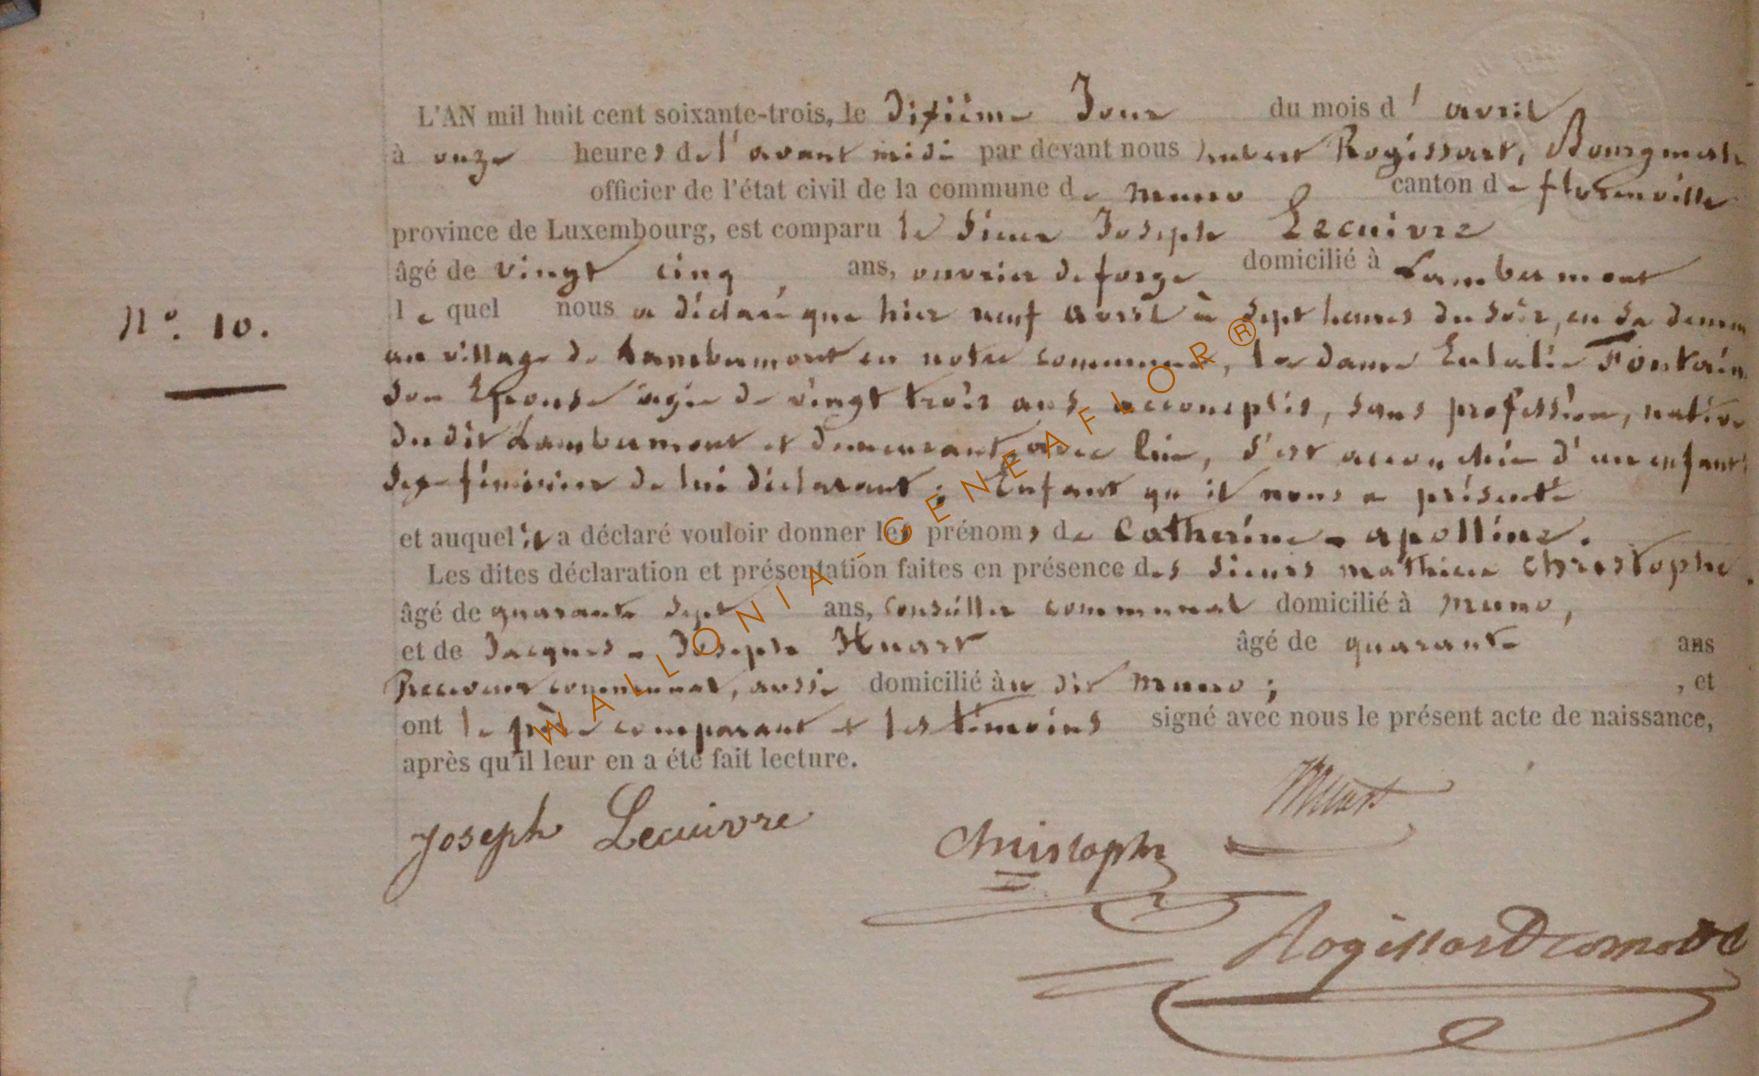 L'AN mil huit cent soixante-trois, le dixième Jour du mois d' avril
à onze heures de l'avant midi par devant nous hubert Rogissart, Bourgmestre
officier de l'état civil de la commune de muno canton de florenville
province de Luxembourg, est comparu le Sieur Joseph Lecuivre
âgé de vingt cinq ans, ouvrier de forge domicilié à Lambermont
N°. 10.
le quel nous a déclaré que hier neuf avril à Sept heures du soir, en sa demeure
au village de Lambermont en notre commune, la dame Eulalie Fontaine
son Epouse agée de vingt trois ans accomplis, sans profession, native
du dit Lambermont et demeurant avec lui, s'est accouchée d'un enfant
sexe féminin de lui déclarant ; Enfant qu'il nous a présenté
et auquel il a déclaré vouloir donner les prénoms de Catherine - apolline.
Les dites déclaration et présentation faites en présence des sieurs mathieu Christophe
âgé de quarante sept ans, conseiller communal domicilié à muno,
et de Jacques - Joseph Huart âgé de quarante ans
Receveur communal, aussi domicilié à u dit muno ; , et
ont le père comparant et les témoins signé avec nous le présent acte de naissance,
après qu'il leur en a été fait lecture.
Joseph Lecuivre
Huart
Christophe
Rogissart
WALLONIA-GENEAFLOR®